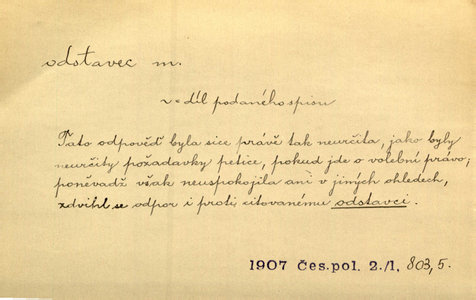 odstavec m.
v = díl podaného spisu
Tato odpověď byla sice právě tak neurčita, jako byly
neurčity požadavky petice, pokud jde o volební právo;
poněvadž však neuspokojila ani v jiných ohledech,
zdvihl se odpor i proti citovanému odstavci.
1907 Čes. pol. 2./1, 803, 5.